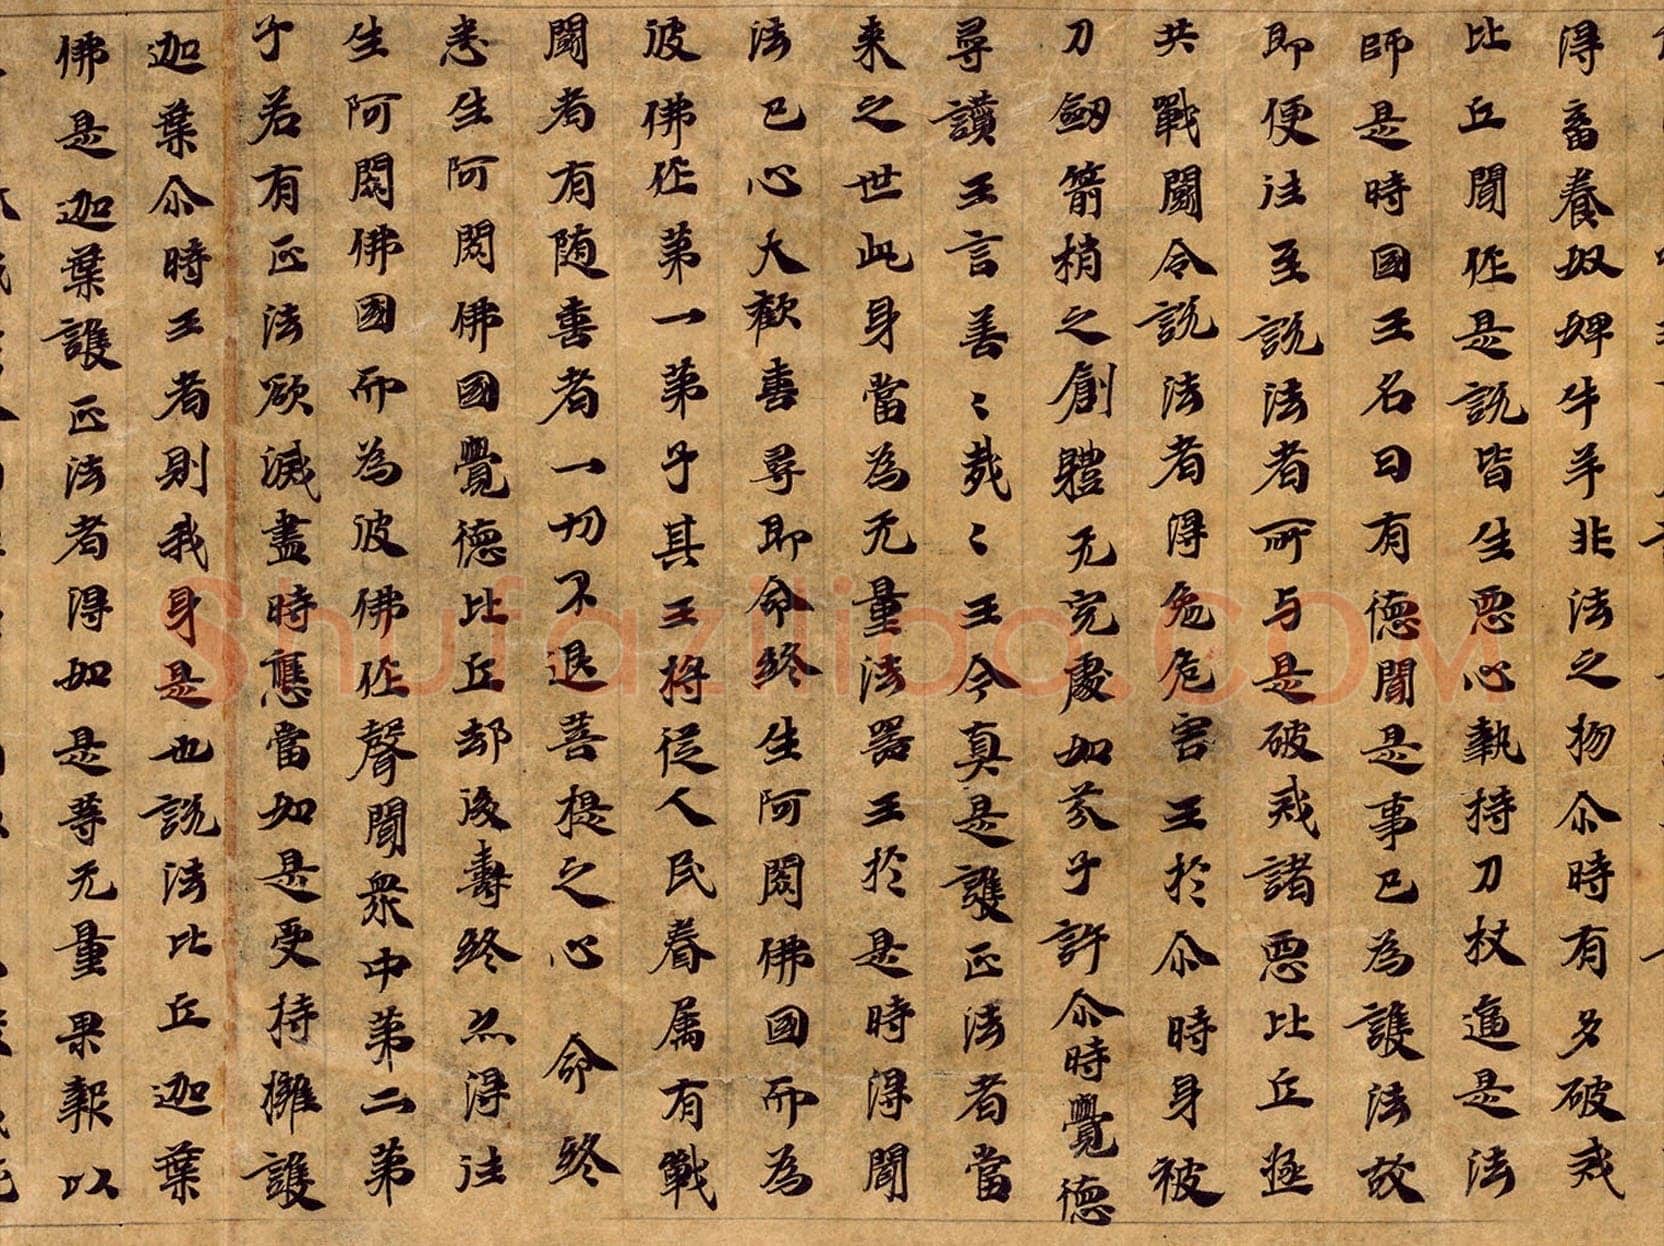 得畜養奴婢牛羊非法之物尒時有多破戒
比丘聞作是説皆生惡心執持刀杖逼是法
師是時國王名曰有德聞是事已為護法故
即便往至説法者所与是破戒諸惡比丘極
共戰鬪令説法者得勉危害王於尒時身被
刀劒箭槊之創體无完處如芥子許尒時覺德
尋讚王言善〻㦲〻王今真是護正法者當
来之世此身當為无量法器王於是時得聞
法已心大歡喜尋即命終生阿閦佛國而為
彼佛作第一弟子其王將從人民眷属有戰
鬪者有随喜者一切不退菩提之心命終
悉生阿閦佛國覺德比丘却後壽終亦得往
生阿閦佛國而為彼佛作聲聞衆中第二弟
子若有正法欲滅盡時應當如是受持擁護
迦葉尒時王者則我身是也説法比丘迦葉
佛是迦葉護正法者得如是等无量果報以
Shufaziliao.COM